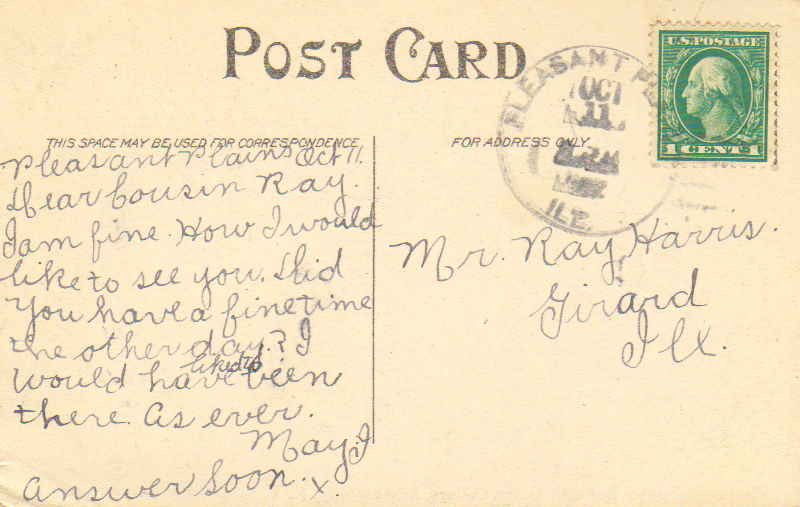 POST CARD
THIS SPACE MAY BE USED FOR CORRESPONDENCE
FOR ADDRESS ONLY.
PLEASANT
OCT
11
ILL.
U.S. POSTAGE
1 CENT 1
Pleasant Plains Oct 11.
Dear Cousin Ray.
I am fine. How I would
like to see you. Did
you have a fine time
the other day? I
would have liked to been
there. As ever.
May
Answer Soon. x
Mr. Ray Harris.
Girard
Ill.